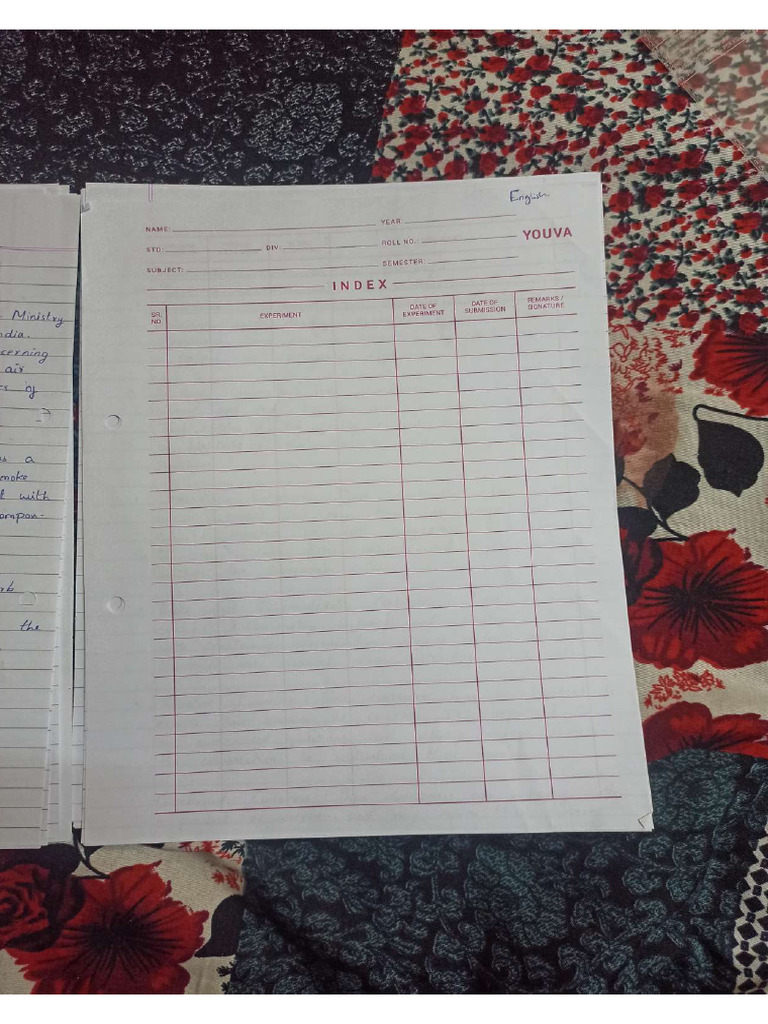 English
NAME: YEAR:
STD: DIV: ROLL NO.: YOUVA
SUBJECT: SEMESTER:
INDEX
SR. NO. EXPERIMENT DATE OF EXPERIMENT DATE OF SUBMISSION REMARKS / SIGNATURE
Ministry
dia.
cerning
air
of
a
moke
with
ompon-
rb
the